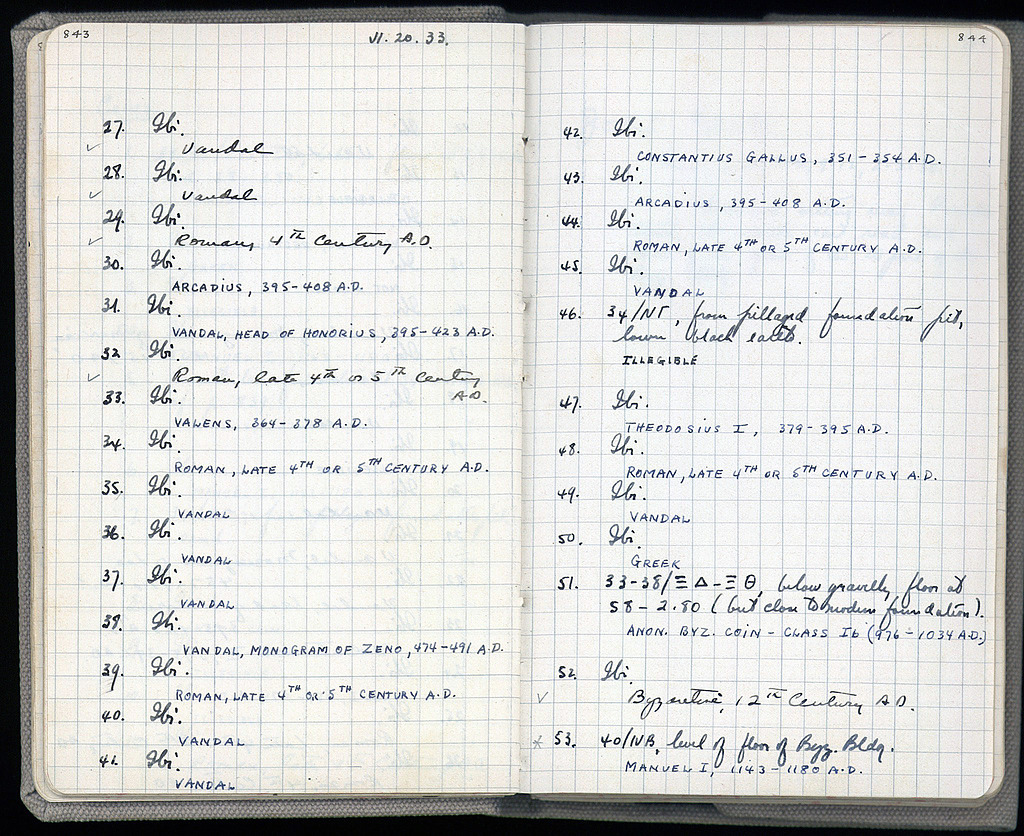 843
VI. 20. 33.
27. Ibi.
Vandal
28. Ibi.
Vandal
29. Ibi.
Roman, 4TH Century A.D.
30. Ibi.
ARCADIUS, 395-408 A.D.
31. Ibi.
VANDAL, HEAD OF HONORIUS, 395-423 A.D.
32. Ibi.
Roman, late 4th or 5th Century
A.D.
33. Ibi.
VALENS, 364-378 A.D.
34. Ibi.
ROMAN, LATE 4TH OR 5TH CENTURY A.D.
35. Ibi.
VANDAL
36. Ibi.
VANDAL
37. Ibi.
VANDAL
38. Ibi.
VANDAL, MONOGRAM OF ZENO, 474-491 A.D.
39. Ibi.
ROMAN, LATE 4TH OR 5TH CENTURY A.D.
40. Ibi.
VANDAL
41. Ibi.
VANDAL
844
42. Ibi.
CONSTANTIUS GALLUS, 351-354 A.D.
43. Ibi.
ARCADIUS, 395-408 A.D.
44. Ibi.
ROMAN, LATE 4TH OR 5TH CENTURY A.D.
45. Ibi.
VANDAL
46. 34/ΝΓ, from pillaged foundation pit,
lower black earth.
ILLEGIBLE
47. Ibi.
THEODOSIUS I, 379-395 A.D.
48. Ibi.
ROMAN, LATE 4TH OR 5TH CENTURY A.D.
49. Ibi.
VANDAL
50. Ibi.
GREEK
51. 33-38/Ξ Δ-Ξ Θ, below gravelly floor at
58-2.80 (but close to modern foundation).
ANON. BYZ. COIN - CLASS Ib (976-1034 A.D.)
52. Ibi.
Byzantine, 12TH Century A.D.
53. 40/ΝΒ, level of floor of Byz. Bldg.
MANUEL I, 1143-1180 A.D.